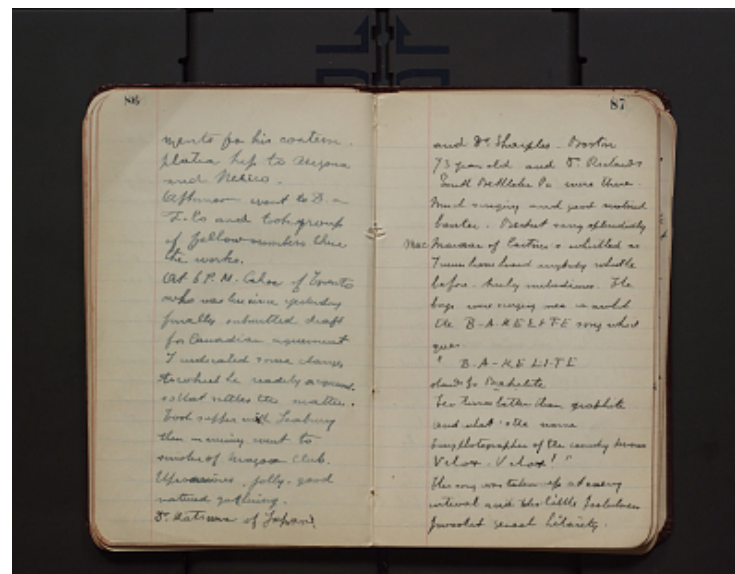 86
ments for his contem-
plated trip to Arizona
and Mexico.
Afternoon went to D. 
& Co and took group
of fellow members thru
the works.
At 6 P.M. Cahn of Toronto
who was here yesterday
finally submitted draft
for Canadian agreement
I indicated some changes
to which he readily
so that settles the matter.
Took supper with Seabury
then in evening went to
smoker of Club.
jolly, good
natured
Dr. of Japan,
87
and Dr. Sharples. Boston
73 year old and Dr. Richards
South Bethlehem Pa were there.
Much singing and good natured
banter. sang splendidly
of whistled as
I never have heard anybody whistle
before. truly melodious. The
boys were singing
the B-A-K-E-L-I-T-E song which
goes
" B-A-K-E-L-I-T-E
stands for Bakelite
better than graphite
and what's the name
photographer of the country knows
Velox. Velox! "
The song was taken up at every
interval and this little
provoked great hilarity.